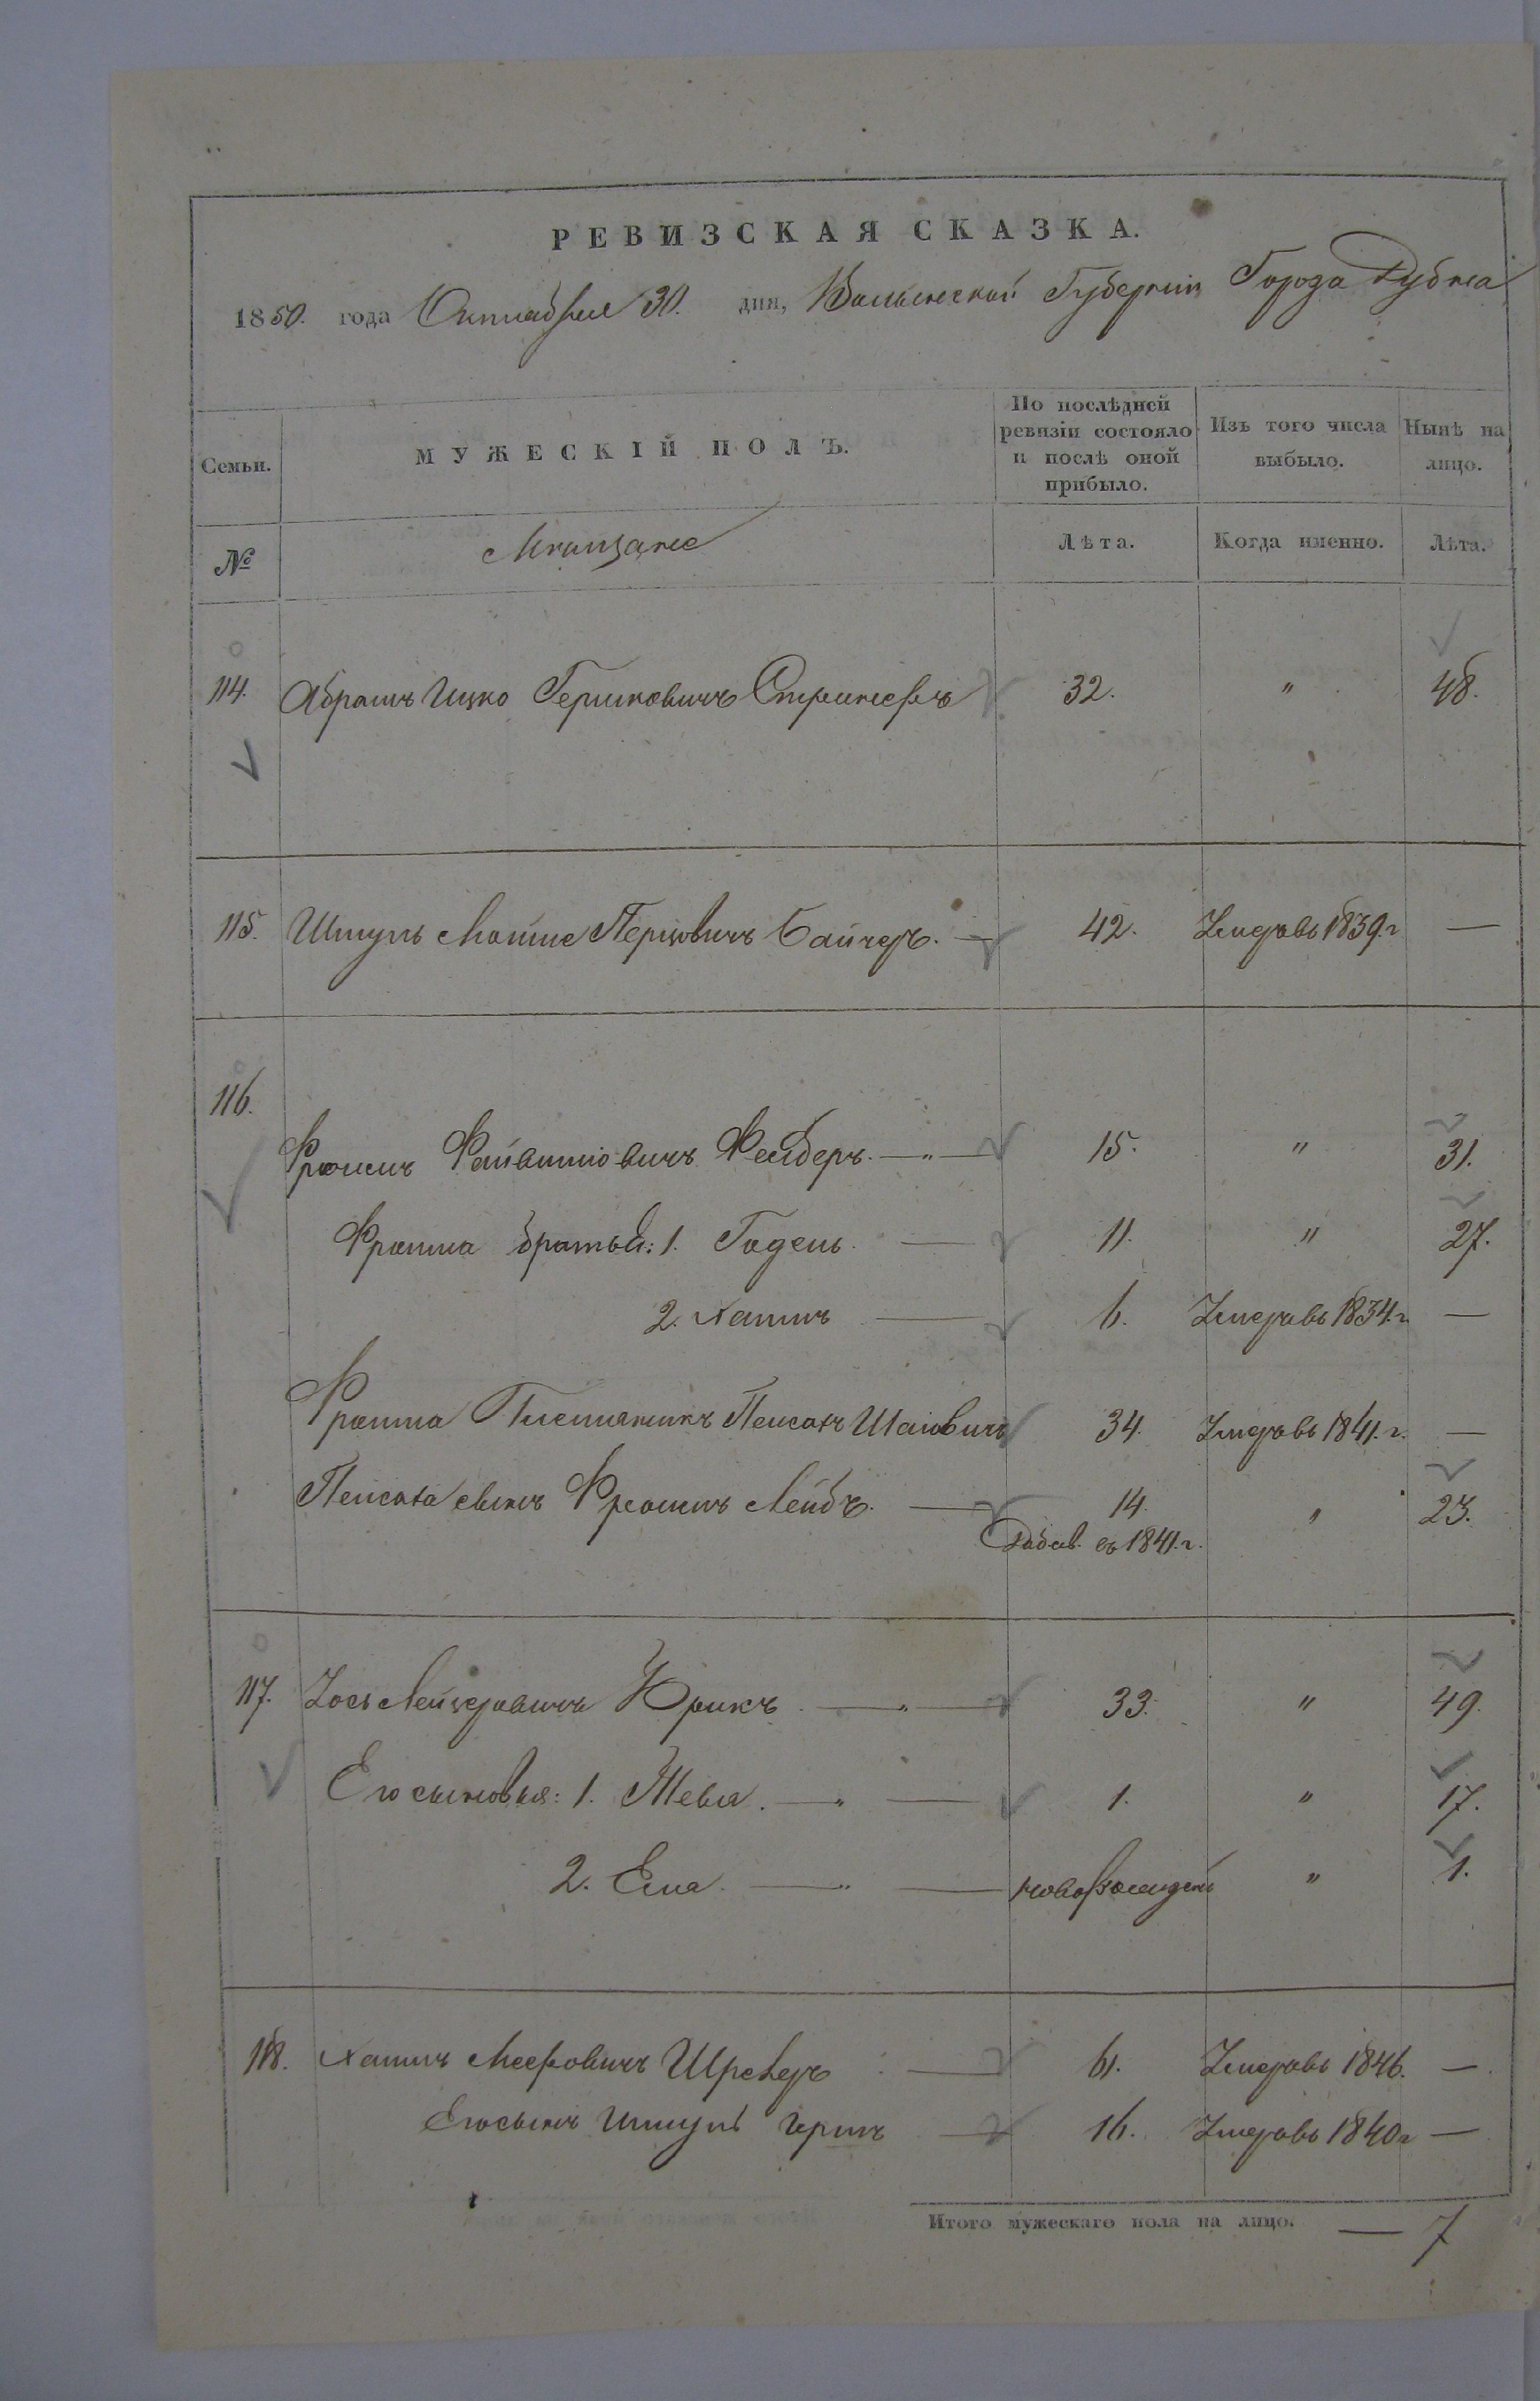 РЕВИЗСКАЯ СКАЗКА.
1850. года Октября 30. дня, Волынской Губернии Города Дубна
Семьи.
МУЖЕСКІЙ ПОЛЪ.
По послѣдней ревизіи состояло и послѣ оной прибыло.
Изъ того числа выбыло.
Нынѣ на лицо.
№
Мѣщане
Лѣта.
Когда именно.
Лѣта.
114. Абрамъ Ицко Гершковичъ Стринеръ 32. " 48.
115. Шмуль Мойше Перцовичъ 42. Умеръ въ 1839 г —
116.
Фроимъ Файвишовичъ Фейберъ. —"— 15. " 31.
Фроима братья: 1. Годель — 11. " 27.
2. Хаимъ — 6. Умеръ въ 1834 г. —
Фроима Племянникъ Пейсахъ Шаиовичъ 34. Умеръ въ 1841. г. —
Пейсаха сынъ Фроимъ Лейбъ. — 14. " 23.
Добав. съ 1841. г.
117. Зось Лейзеровичъ Юрикъ —"— 33. " 49.
Его сыновья: 1. Тевья. —"— 1. " 17.
2. Еля —"— новорожденъ " 1.
118. Хаимъ Мееровичъ Шредеръ — 61. Умеръ въ 1846. —
Его сынъ Шмуль Гершъ — 16. Умеръ въ 1840 г —
Итого мужескаго пола на лицо. — 7